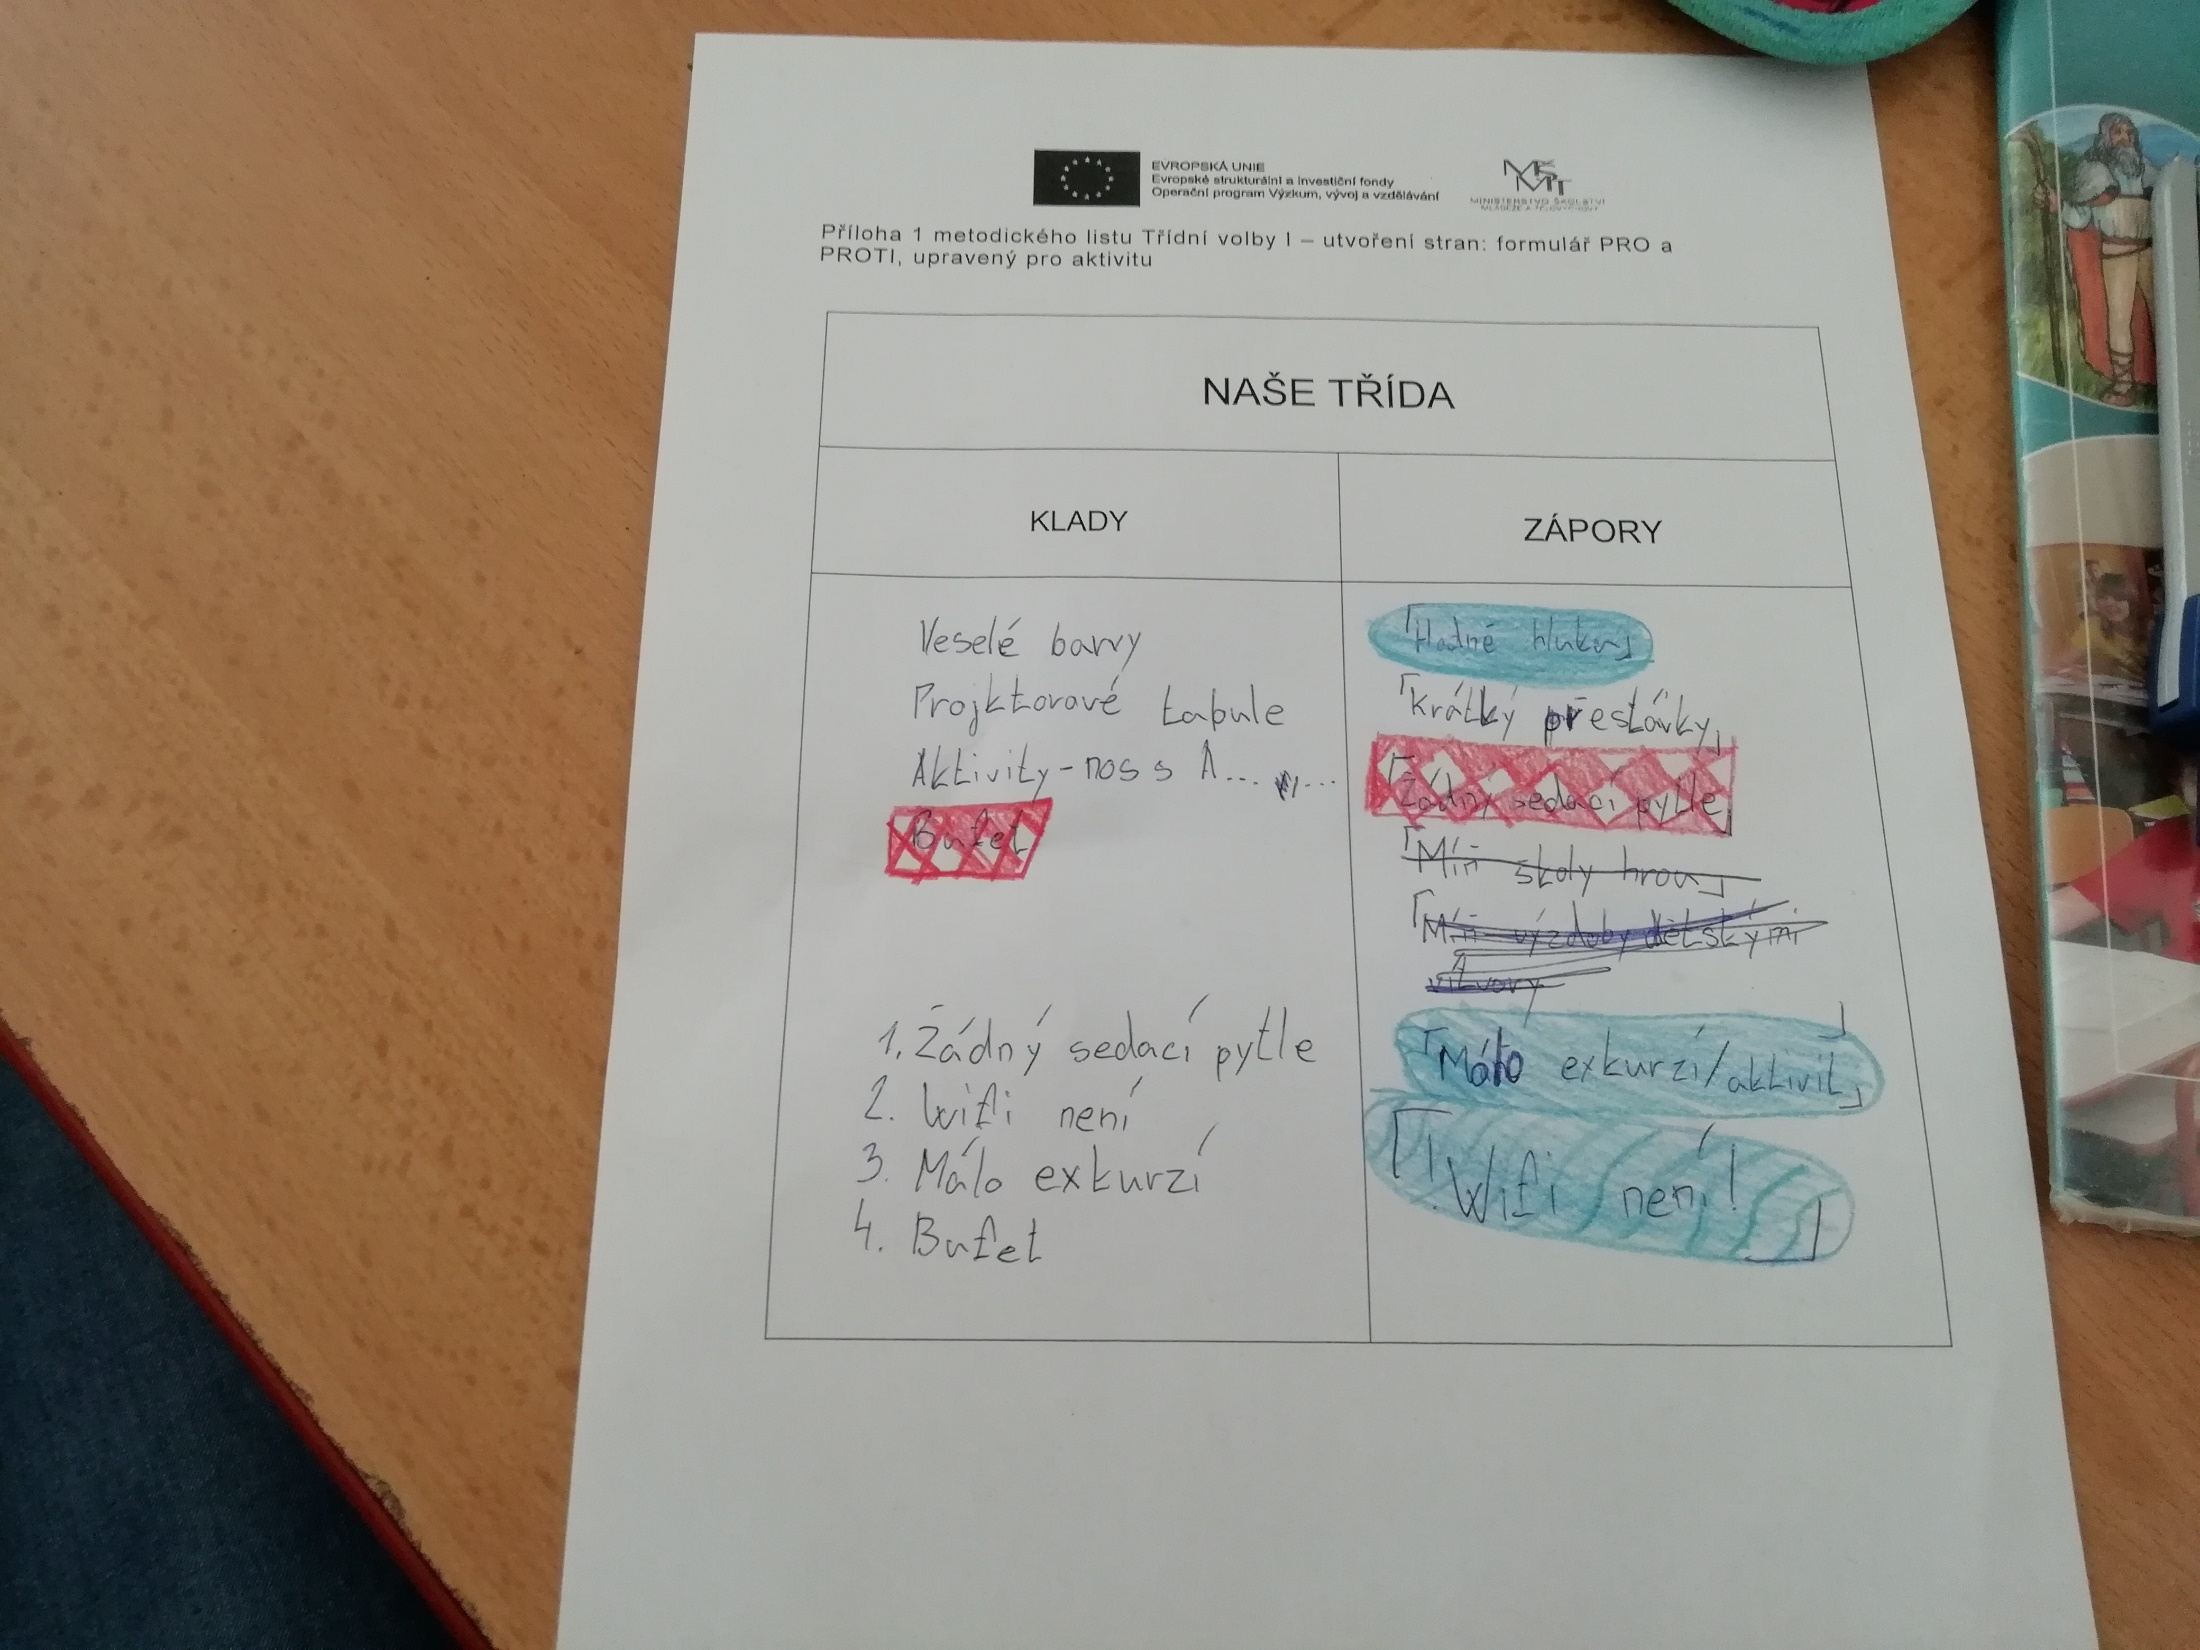 EVROPSKÁ UNIE
Evropské strukturální a investiční fondy
Operační program Výzkum, vývoj a vzdělávání
MŠMT
MINISTERSTVO ŠKOLSTVÍ
MLÁDEŽE A TĚLOVÝCHOVY
Příloha 1 metodického listu Třídní volby I – utvoření stran: formulář PRO a
PROTI, upravený pro aktivitu
NAŠE TŘÍDA
KLADY
Veselé barvy
Projktorové tabule
Aktivity-nos s A...
Bufet
1. Žádný sedací pytle
2. Wifi není
3. Málo exkurzí
4. Bufet
ZÁPORY
Hodně hluku
Krátký přestávky
Žádný sedací pytle
Míň školy hrou
Míň výzdoby dětskými
vítvory
Málo exkurzí/aktivit
Wifi není!